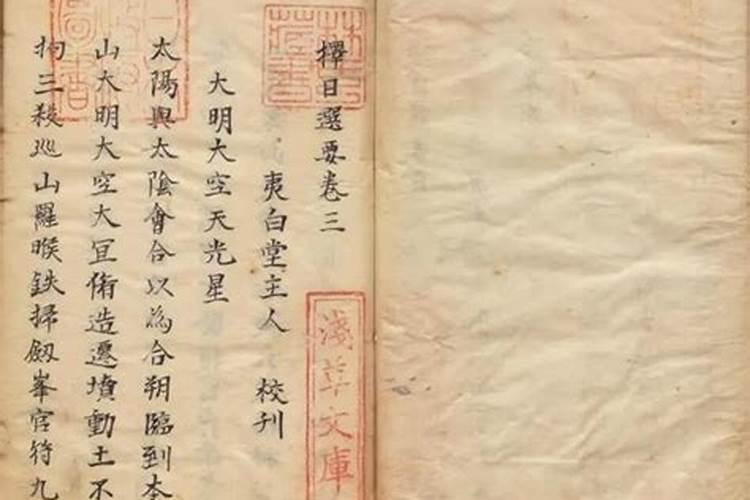 擇日選要卷三
夷白堂主人 校刋
大明大空天光星
太陽與太陰會合以為合朔臨到本
山大明大空大宜俻造遷墳動土不
拘三殺巡山羅㬋鉄掃劔峯官符九
淺草文庫